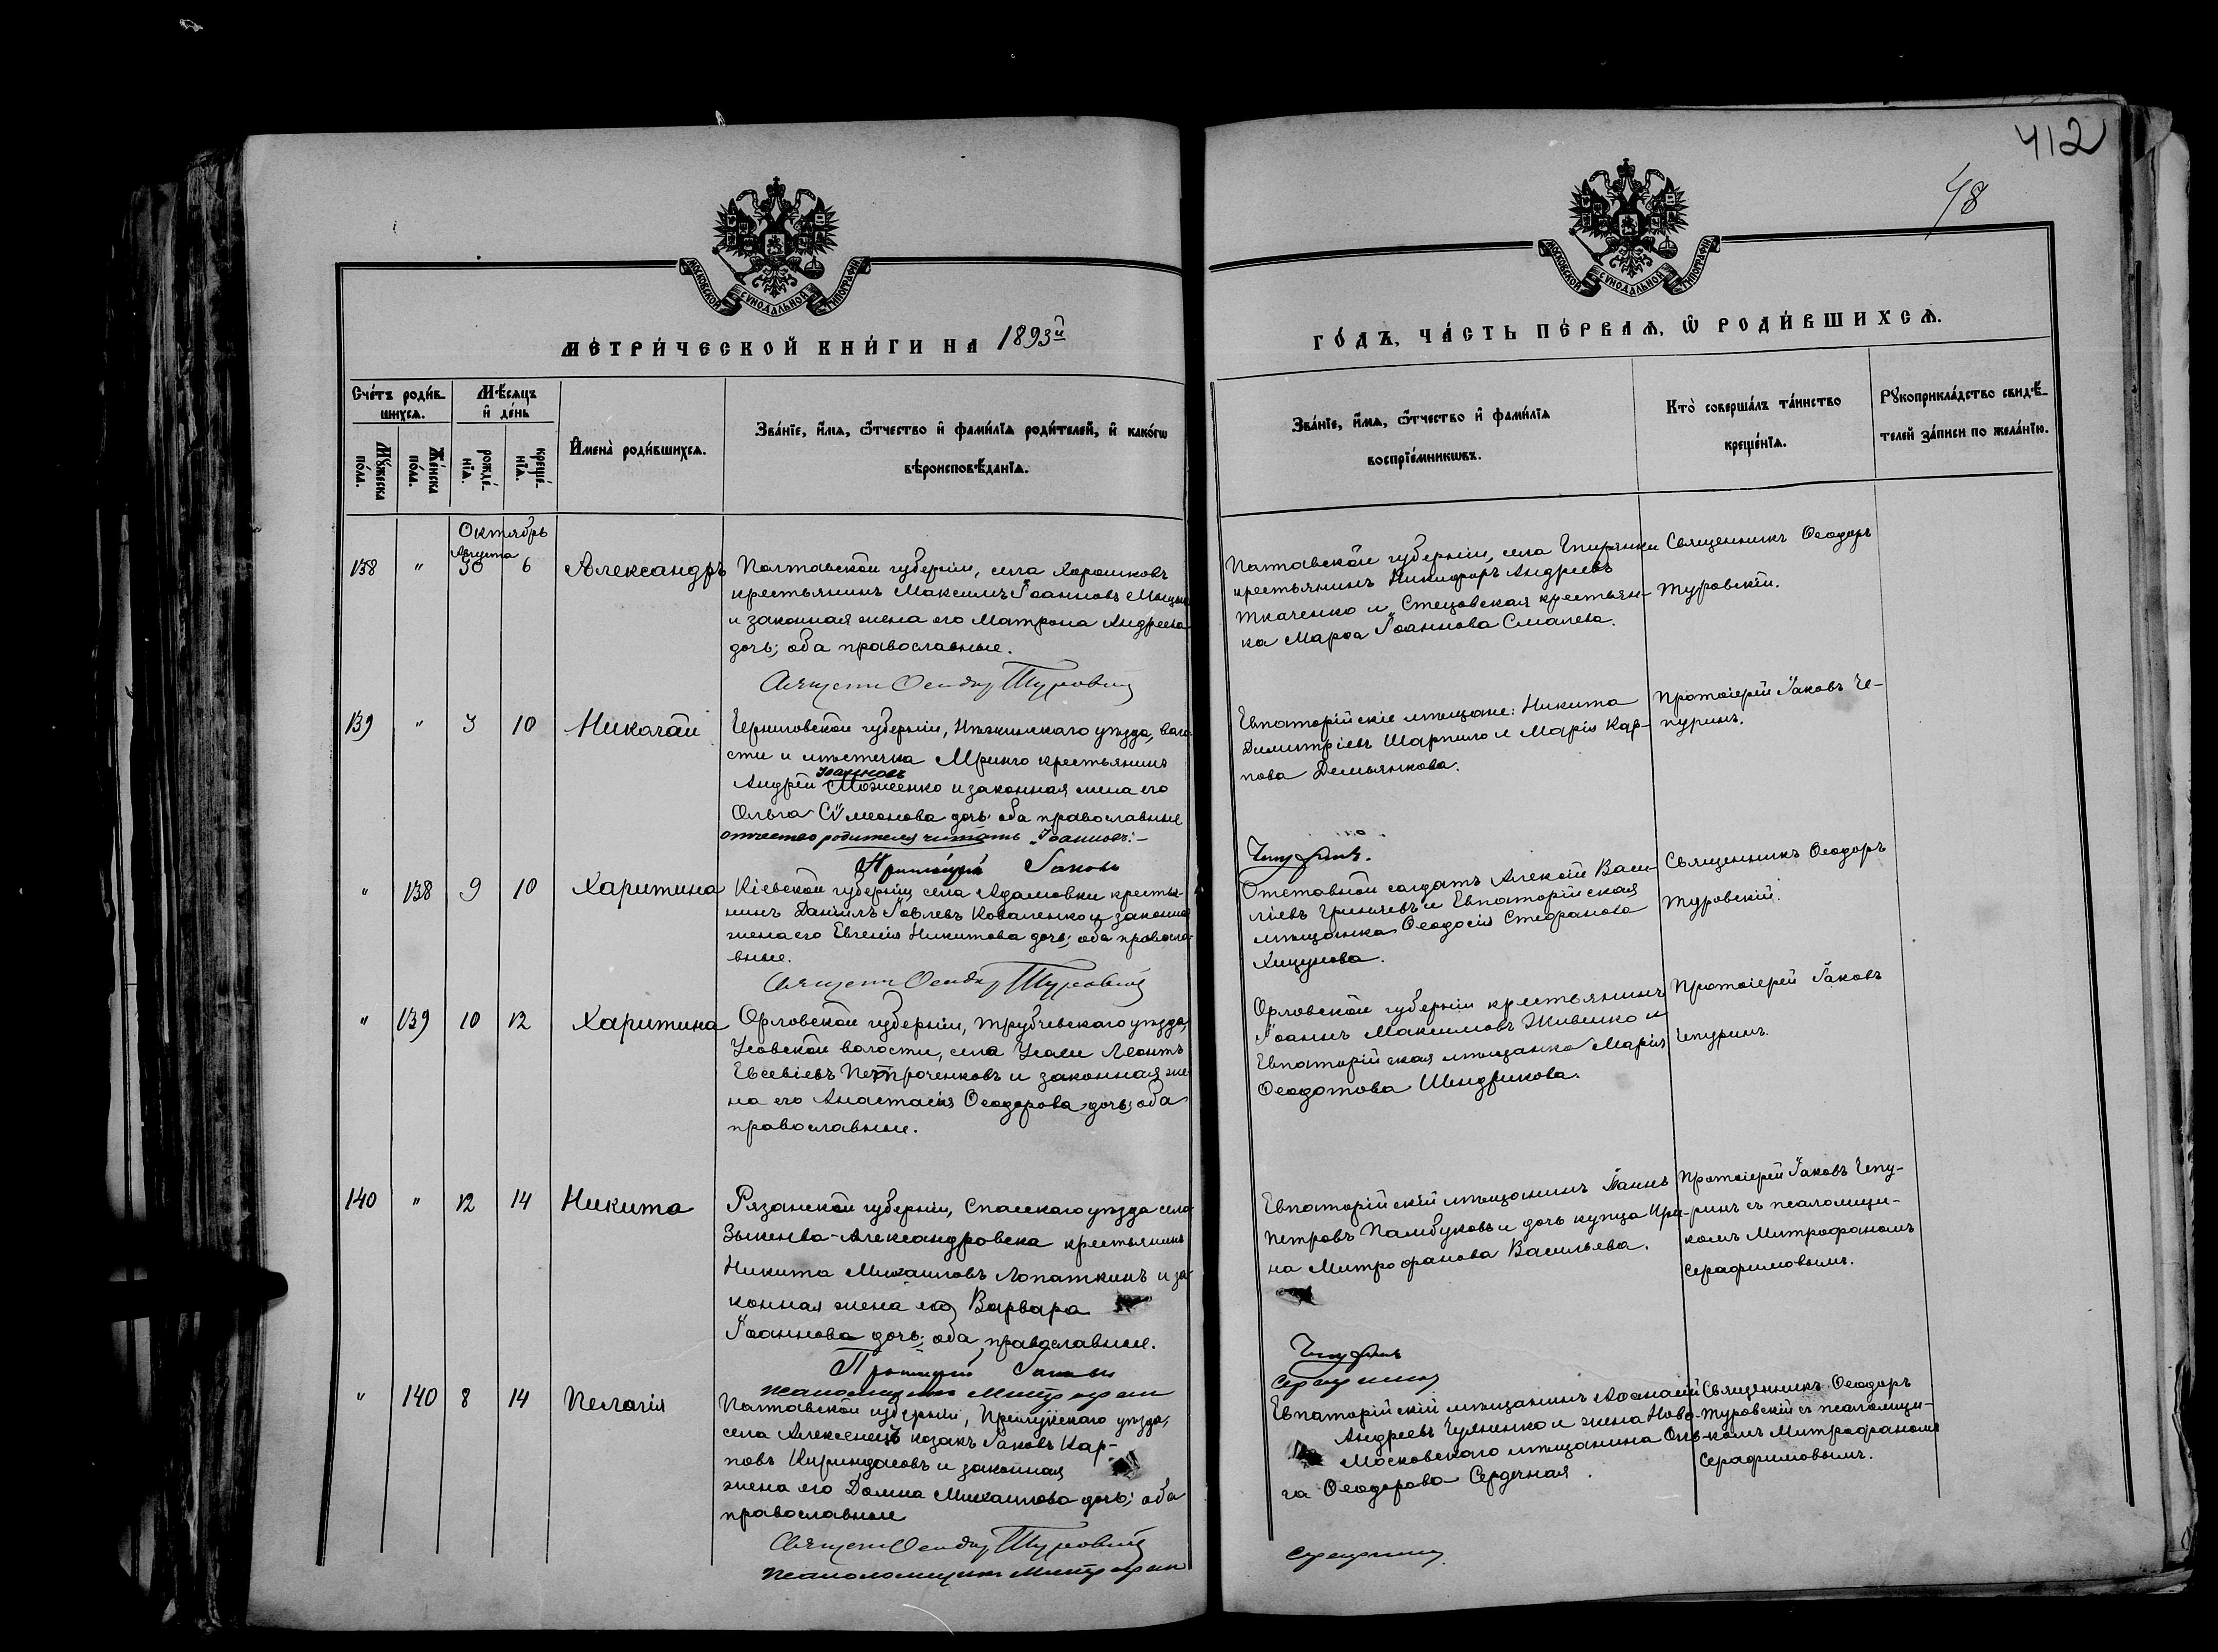 412
48
МОСКОВСКОЙ СУНОДАЛЬНОЙ ТИПОГРАФІИ
МОСКОВСКОЙ СУНОДАЛЬНОЙ ТИПОГРАФІИ
МЕТРИЧЕСКОЙ КНИГИ НА 1893й
ГОДЪ, ЧАСТЬ ПЕРВАЯ, Ѡ РОДИВШИХСЯ.
Счетъ родившихся.
Мужеска пола.
Женска пола.
Мѣсяцъ и день
рожденія.
крещенія.
Имена родившихся.
Званіе, имя, ѻтчество и фамилія родителей, и какогѡ
вѣроисповѣданія.
Званіе, имя, ѻтчество и фамилія
воспріемникѡвъ.
Кто совершалъ таинство
крещенія.
Рукоприкладство свидѣ-
телей записи по желанію.
Октябрь
Августа
138 " 30 6 Александръ
Полтавской губерніи, села Хорошковъ
крестьянинъ Максимъ Іоанновъ
и законная жена его Матрона Андреева
дочь; оба православные.
Священ Ѳеодор Туровскій
Полтавской губерніи, села
крестьянинъ Никифоръ Андреевъ
Ткаченко и Стецовская крестьян-
ка Марѳа Іоаннова Смалева.
Священникъ Ѳеодоръ
Туровскій.
139 " 3 10 Николай
Черниговской губерніи, Нѣжинскаго уѣзда, воло-
сти и мѣстечка Мрина крестьянинъ
Іоанновъ
Андрей Моженко и законная жена его
Ольга Сѵмеонова дочь; оба православные
отчество родителя читать „Іоанновъ".—
Протоіерей Іаковъ
Чепуринъ.
Евпаторійскіе мѣщане: Никита
Димитріевъ Шарпило и Марія Кар-
пова Демьянкова.
Протоіерей Іаковъ Че-
пуринъ.
" 138 9 10 Харитина
Кіевской губерніи, села Адамовки кресть-
нинъ Даніилъ Іовлевъ Коваленко и законная
жена его Евгенія Никитова дочь; оба правосла-
вные.
Священ Ѳеодор Туровскій
Отставной солдатъ Алексій Васи-
ліевъ Гриневъ и Евпаторійская
мѣщанка Ѳеодосія Стефанова
Хицунова.
Священникъ Ѳеодоръ
Туровскій.
" 139 10 12 Харитина
Орловской губерніи, Трубчевскаго уѣзда,
Усовской волости, села Леонтъ
Евсевіевъ Петроченковъ и законная же-
на его Анастасія Ѳеодорова дочь; оба
православные.
Орловской губерніи крестьянинъ
Іоаннъ Максимовъ Живенко и
Евпаторійская мѣщанка Марія
Ѳеодотова Шендрикова.
Протоіерей Іаковъ
Чепуринъ.
140 " 12 14 Никита
Рязанской губерніи, Спасскаго уѣзда села
Александровска крестьянинъ
Никита Михаиловъ Лопаткинъ и за-
конная жена его Варвара
Іоаннова дочь; оба православные.
Протоіерей Іаковъ
псаломщикъ Митрофан
Чепуринъ
Серафимов
Евпаторійскій мѣщанинъ Іоаннъ
Петровъ Памбуковъ и дочь купца Ири-
на Митрофанова Васильева.
Протоіерей Іаковъ Чепу-
ринъ съ псаломщи-
комъ Митрофаномъ
Серафимовымъ.
" 140 8 14 Пелагія
Полтавской губерніи, Прилукскаго уѣзда,
села козакъ Іаковъ Кар-
повъ Кириндасовъ и законная
жена его Домна Михаилова дочь; оба
православные
Священ Ѳеодор Туровскій
псаломщикъ Митрофан
Серафимов
Евпаторійскій мѣщанинъ Аѳанасій
Андреевъ и жена Ново-
Московскаго мѣщанина Оль-
га Ѳеодорова Сердечная.
Священникъ Ѳеодоръ
Туровскій съ псаломщи-
комъ Митрофаномъ
Серафимовымъ.